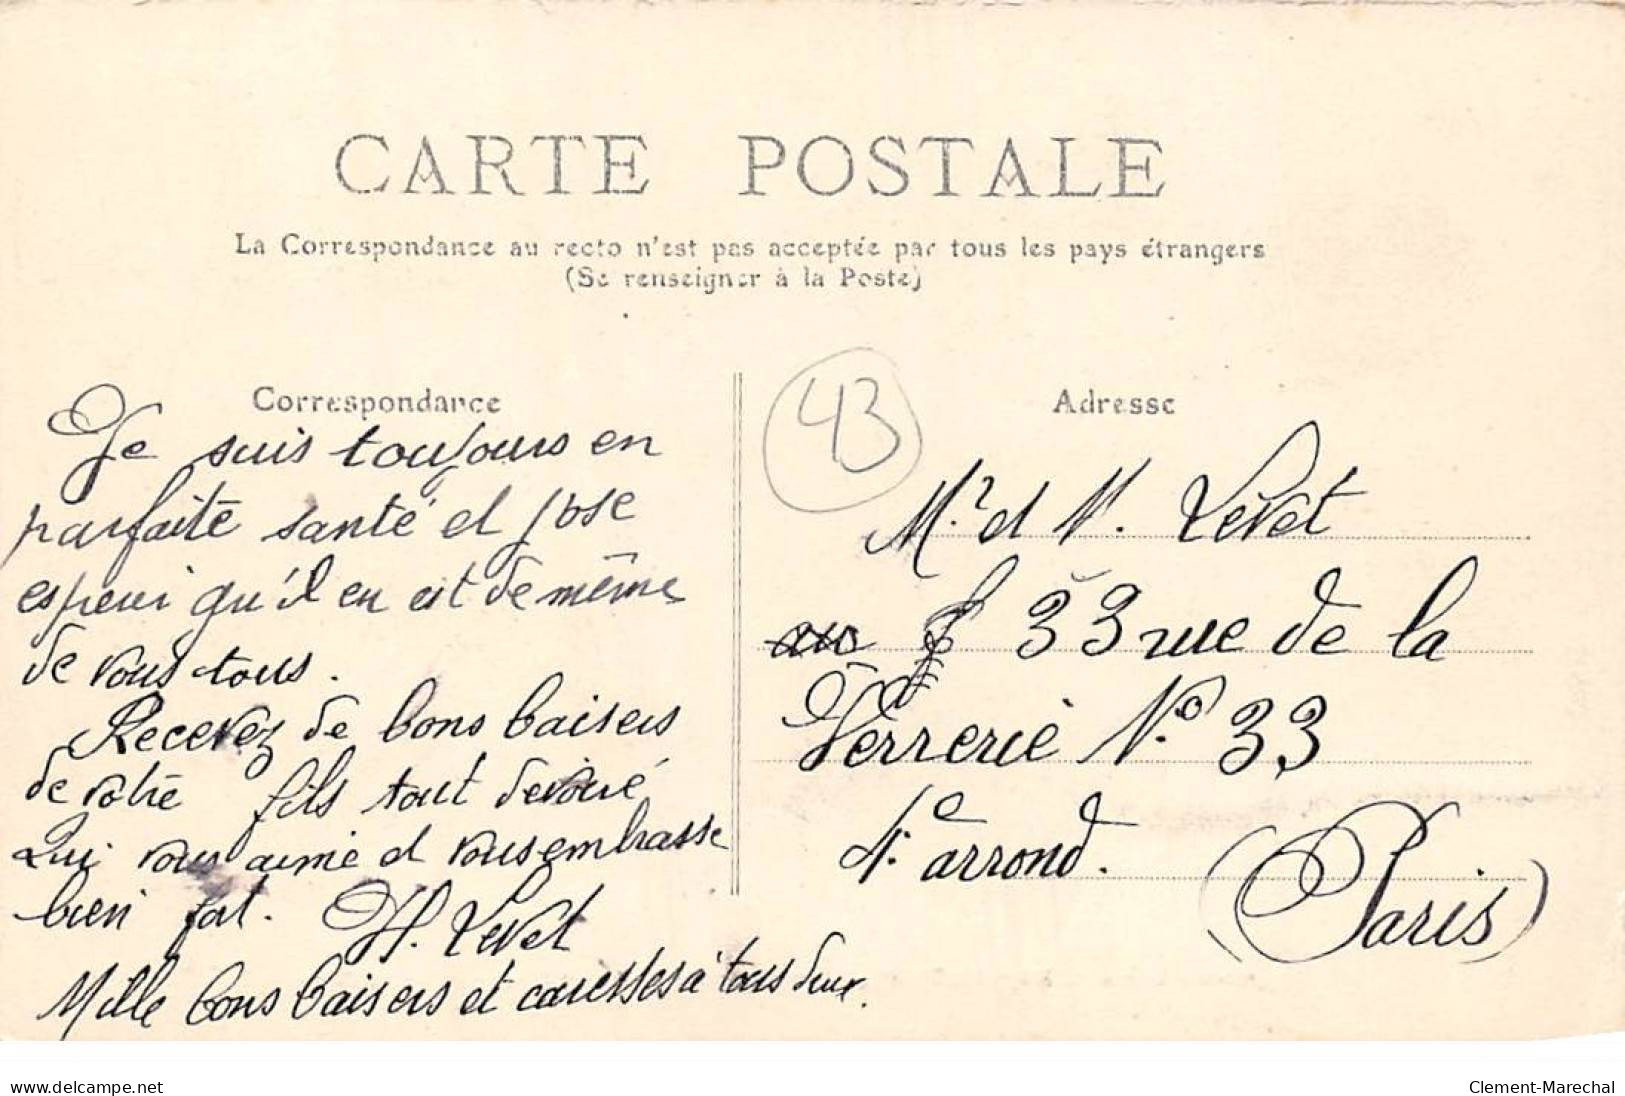 CARTE POSTALE
La Correspondance au recto n'est pas acceptée par tous les pays étrangers
(Se renseigner à la Poste)
Correspondance
Je suis toujours en
parfaite santé et j'ose
esperer qu'il en est de même
de vous tous.
Recevez de bons baisers
de votre fils tout dévoué
Qui vous aime et vous embrasse
bien fort. H. Levet
Mille bons baisers et caresses à tous deux.
43
Adresse
M.r et M. Levet
au 33 rue de la
Verrerie N.o 33
4.e arrond.
(Paris)
www.delcampe.net
Clement-Marechal